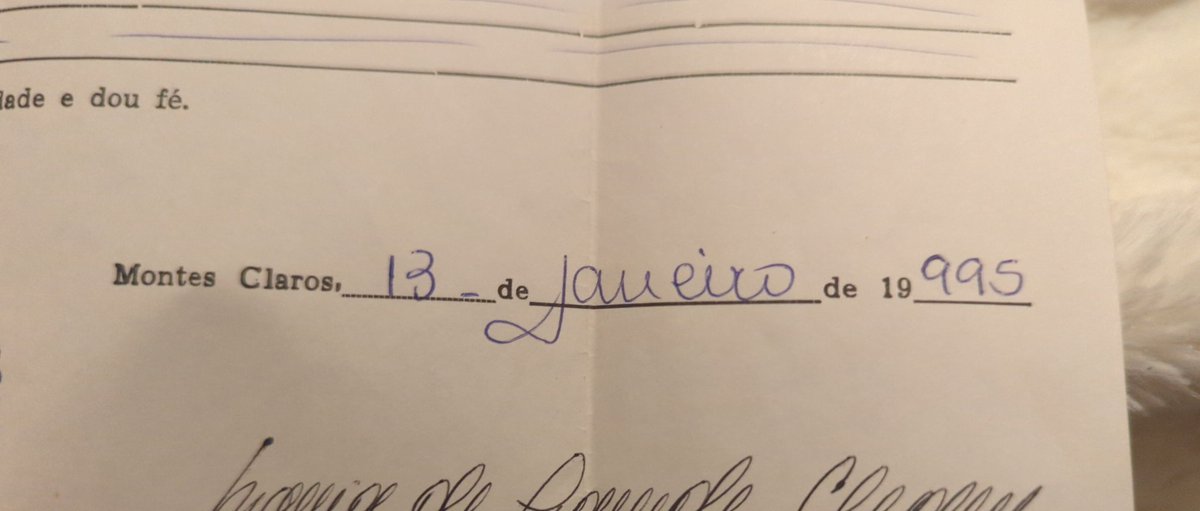 dade e dou fé.
Montes Claros, 13 - de Janeiro de 19995